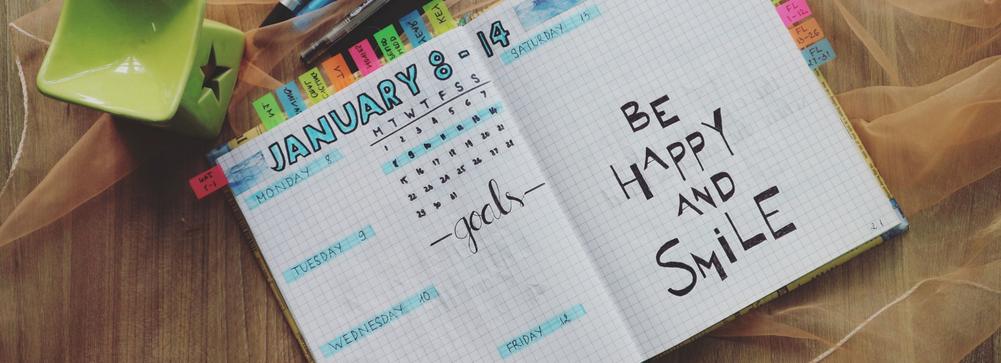 JANUARY 8-14
M T W T F S S
1 2 3 4 5 6 7
8 9 10 11 12 13 14
15 16 17 18 19 20 21
22 23 24 25 26 27 28
29 30 31
MONDAY 8
goals
TUESDAY 9
WEDNESDAY 10
FRIDAY 12
SATURDAY 13
BE
HAPPY
AND
SMiLE
21
KEY
FL
1-12
FL
13-26
FL
27-31